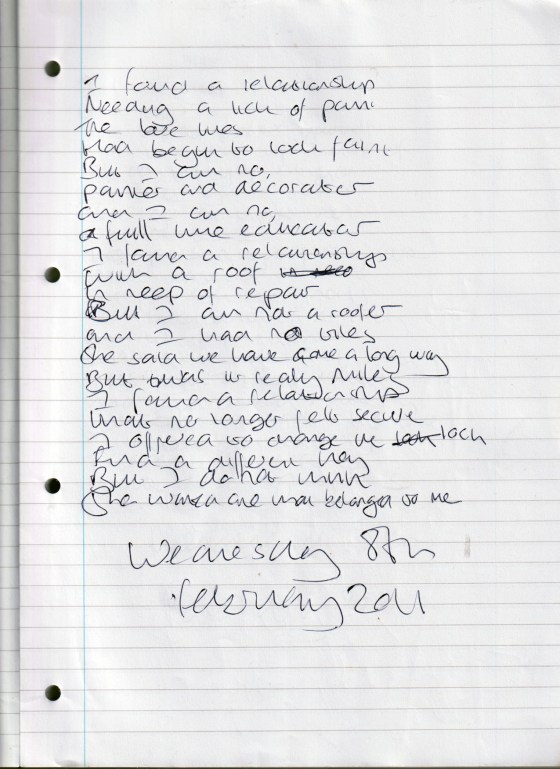 I found a relationship
Needing a lick of paint
The love lines
Had begun to look faint
But I am no
painter and decorator
and I am no
a full time educator
I found a relationship
with a roof
In need of repair
But I am not a roofer
and I had no tiles
She said we have come a long way
But was it really miles
I found a relationship
that no longer felt secure
I offered to change the lock
Find a different key
But I do not think
She wanted one that belonged to me
Wednesday 8th
February 2011